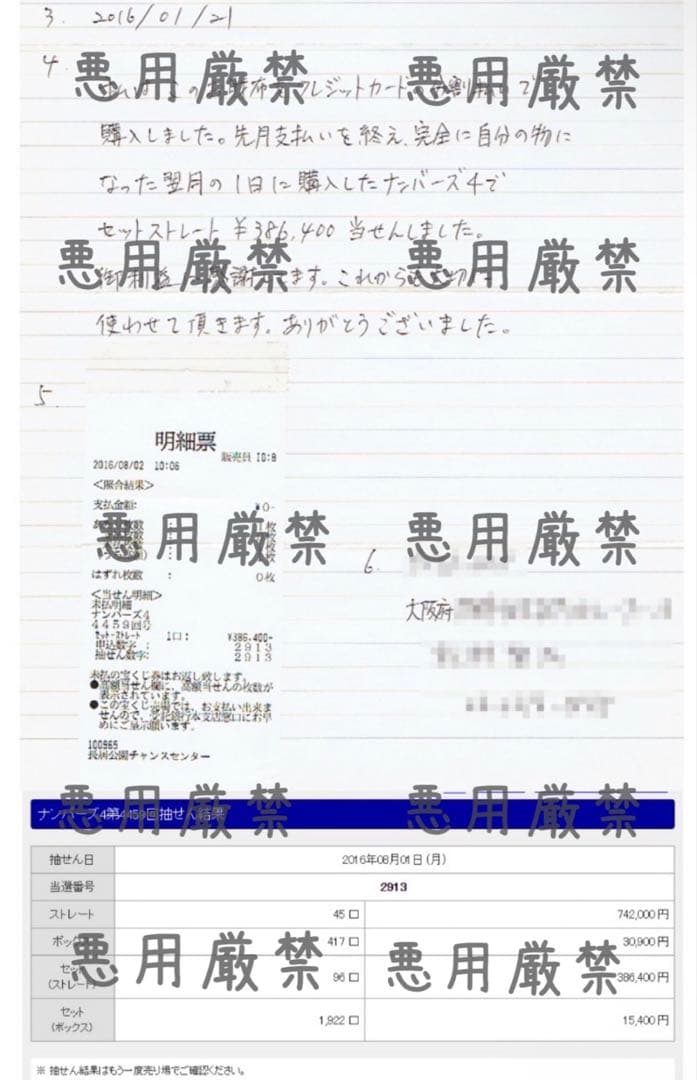 3. 2016/01/21
4.
悪用厳禁 悪用厳禁
私は この 財布 クレジットカード 分割払いで
購入しました。先月支払いを終え、完全に自分の物に
なった翌月の1日に購入したナンバーズ4で
セットストレート ¥386,400 当せんしました。
悪用厳禁 悪用厳禁
御利益 感謝 ます。これからも大切に
使わせて頂きます。ありがとうございました。
5
明細票
販売員 ID:8
2016/08/02 10:06
<照合結果>
支払金額: ¥0-
悪用厳禁 悪用厳禁
枚
はずれ枚数 : 0枚
6.
<当せん明細>
未払明細
ナンバーズ4
大阪府
4459回号
セット・ストレート 1口: ¥386,400-
申込数字: 2913
抽せん数字: 2913
未払の宝くじ券はお返し致します。
●高額当せん欄に、高額当せんの枚数が
表示されています。
●この宝くじ売場では、お支払い出来ま
せんので、受託銀行本支店窓口にお早
めにご呈示願います。
100965
長居公園チャンスセンター
悪用厳禁 悪用厳禁
ナンバーズ4第4459回抽せん結果
抽せん日 2016年08月01日(月)
当選番号 2913
ストレート 45口 742,000円
ボックス 417口 30,900円
悪用厳禁 悪用厳禁
セット
(ストレート) 96口 386,400円
セット
(ボックス) 1,922口 15,400円
※ 抽せん結果はもう一度売り場でご確認ください。